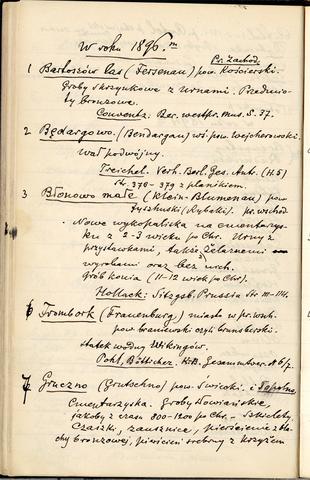 W roku 1896.m
Pr. Zachod.
1 Bartoszów las (Fersenau) pow. Kościerski.
Groby skrzynkowe z urnami. Przedmio-
ty bronzowe.
Conventz: Ber. westpr. mus. S. 37.
2 Będargowo. (Bendargau) wś pow. wejherowski.
Wał podwójny.
Treichel. Verh. Berl. Ges. Ant. (H.5)
Str. 370-379 z planikiem.
3 Błonowo małe (Klein-Blumenau) pow
(Rybacki). pr. wschod
Nowe wykopaliska na cmentarzy-
sku z 2-3 wieku po Chr. Urny z
przystawkami, także żelaznemi
wyrobami oraz bez nich.
Grób konia (11-12 wiek po Chr).
Hollack: Sitzgsb. Prussia Str. 111-114.
6 Frombork (Frauenburg) miasto w pr. wsch.
pow. braniewski czyli brunsberski.
statek wodny Wikingów.
Pohl, Bötticher. Gesammtver. № 6/7.
7 Gruczno (Grutschno) pow. Świecki. i Topolno
Cmentarzyska. Groby słowiańskie,
jakoby z czasu 800-1200 po Chr. - Szkielety
Czaszki, zausznice, pierścienie z bla-
chy bronzowej, pierścień srebrny z krzyżem